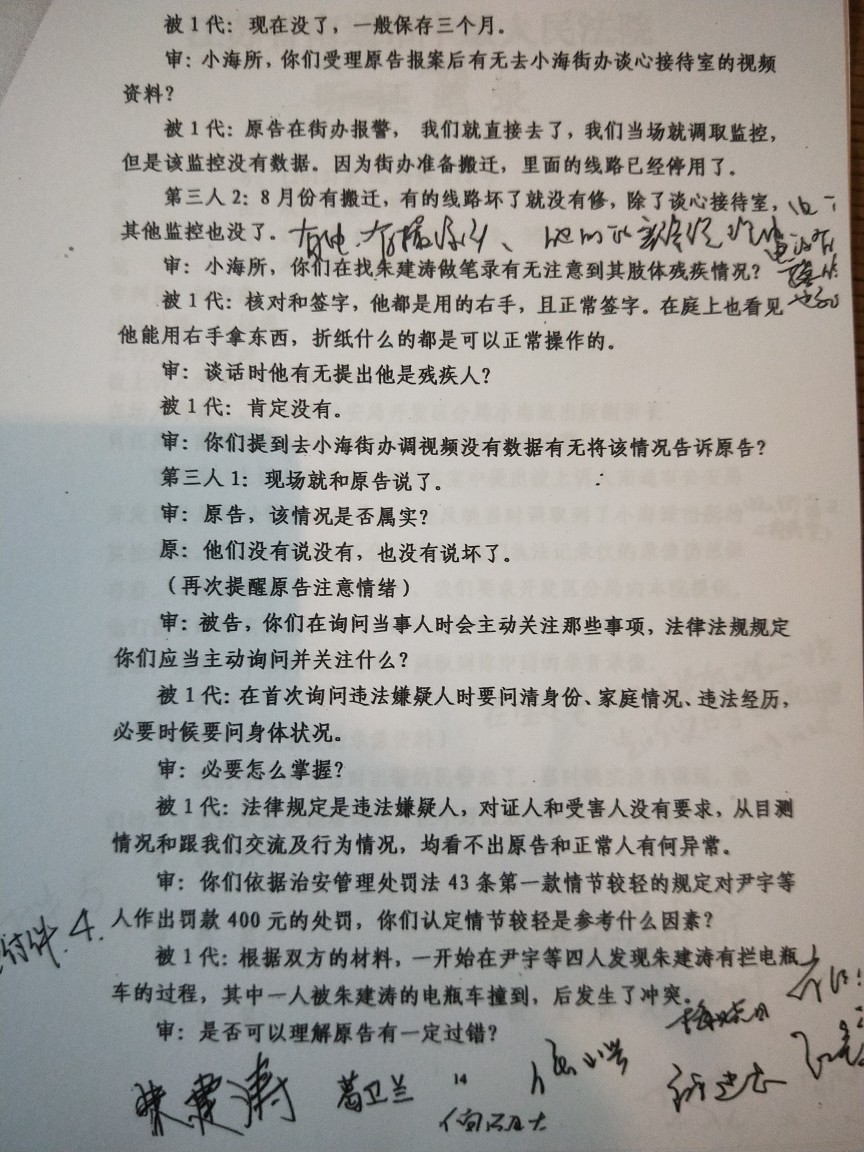 被1代：现在没了，一般保存三个月。
审：小海所，你们受理原告报案后有无去小海街办谈心接待室的视频
资料？
被1代：原告在街办报警， 我们就直接去了，我们当场就调取监控，
但是该监控没有数据。因为街办准备搬迁，里面的线路已经停用了。
第三人2：8月份有搬迁，有的线路坏了就没有修，除了谈心接待室，
其他监控也没了。
审：小海所，你们在找朱建涛做笔录有无注意到其肢体残疾情况？
被1代：核对和签字，他都是用的右手，且正常签字。在庭上也看见
他能用右手拿东西，折纸什么的都是可以正常操作的。
审：谈话时他有无提出他是残疾人？
被1代：肯定没有。
审：你们提到去小海街办调视频没有数据有无将该情况告诉原告？
第三人1：现场就和原告说了。
审：原告，该情况是否属实？
原：他们没有说没有，也没有说坏了。
（再次提醒原告注意情绪）
审：被告，你们在询问当事人时会主动关注那些事项，法律法规规定
你们应当主动询问并关注什么？
被1代：在首次询问违法嫌疑人时要问清身份、家庭情况、违法经历，
必要时候要问身体状况。
审：必要怎么掌握？
被1代：法律规定是违法嫌疑人，对证人和受害人没有要求，从目测
情况和跟我们交流及行为情况，均看不出原告和正常人有何异常。
审：你们依据治安管理处罚法43条第一款情节较轻的规定对尹宇等
人作出罚款400元的处罚，你们认定情节较轻是参考什么因素？
附件.4.
被1代：根据双方的材料，一开始在尹宇等四人发现朱建涛有拦电瓶
车的过程，其中一人被朱建涛的电瓶车撞到，后发生了冲突。
审：是否可以理解原告有一定过错？
朱建涛 葛卫兰 14